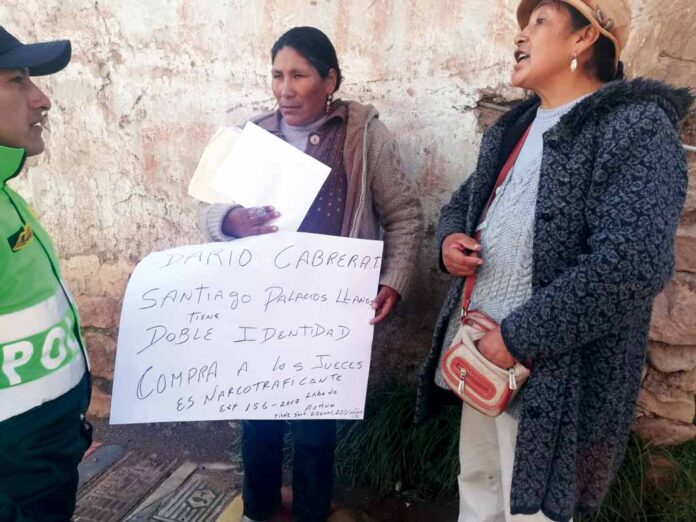 DARIO CABRERA T.
SANTIAGO PALACIOS LLANOS
TIENE
DOBLE IDENTIDAD
COMPRA A LOS JUECES
ES NARCOTRAFICANTE
EXP 156-2017 LABADO
ACTIVO
TIENE
PO